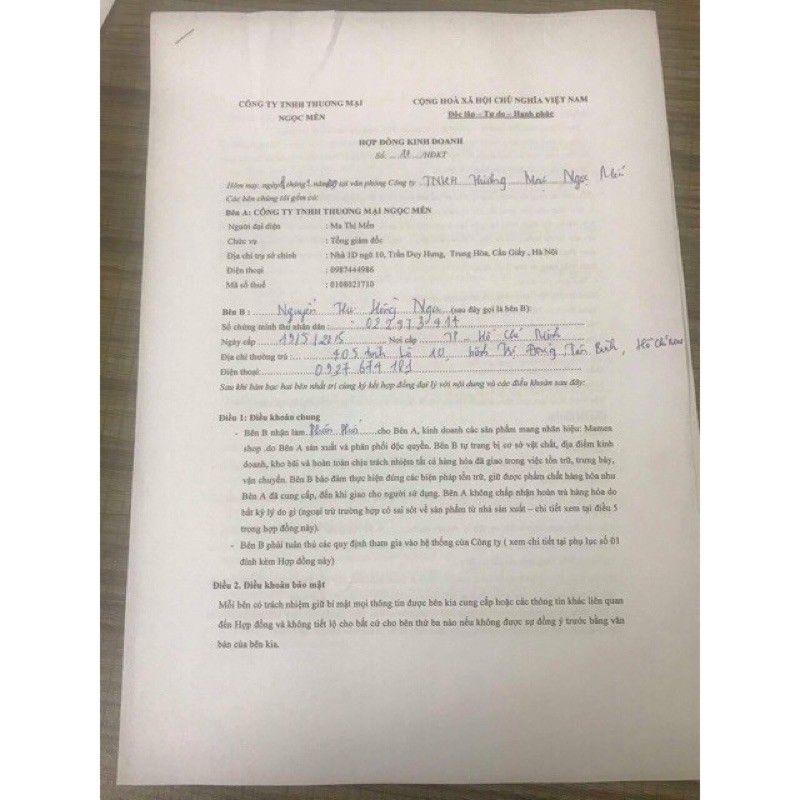 CÔNG TY TNHH THƯƠNG MẠI
NGỌC MÊN
CỘNG HOÀ XÃ HỘI CHỦ NGHĨA VIỆT NAM
Độc lập – Tự do – Hạnh phúc
HỢP ĐỒNG KINH DOANH
Số: /HĐKT
Hôm nay, ngày tháng năm tại văn phòng Công ty TNHH Thương Mại Ngọc
Các bên chúng tôi gồm có:
Bên A: CÔNG TY TNHH THƯƠNG MẠI NGỌC MÊN
Người đại diện : Ma Thị Mến
Chức vụ : Tổng giám đốc
Địa chỉ trụ sở chính : Nhà 1D ngõ 10, Trần Duy Hưng, Trung Hòa, Cầu Giấy, Hà Nội
Điện thoại : 0987444986
Mã số thuế : 0108021710
Bên B : Nguyễn Thu Hồng Nga (sau đây gọi là bên B):
Số chứng minh thư nhân dân : 022973914
Ngày cấp 19/5/2015 Nơi cấp TP Hồ Chí Minh
Địa chỉ thường trú : 705 tỉnh Lộ 10, bình Trị Đông Tân Bình, Hồ Chí Minh
Điện thoại: 0927 674 181
Sau khi bàn bạc hai bên nhất trí cùng ký kết hợp đồng đại lý với nội dung và các điều khoản sau đây:
Điều 1: Điều khoản chung
- Bên B nhận làm Phân Phối cho Bên A, kinh doanh các sản phẩm mang nhãn hiệu: Mamen
shop .do Bên A sản xuất và phân phối độc quyền. Bên B tự trang bị cơ sở vật chất, địa điểm kinh
doanh, kho bãi và hoàn toàn chịu trách nhiệm tất cả hàng hóa đã giao trong việc tồn trữ, trưng bày,
vận chuyển. Bên B bảo đảm thực hiện đúng các biện pháp tồn trữ, giữ được phẩm chất hàng hóa như
Bên A đã cung cấp, đến khi giao cho người sử dụng. Bên A không chấp nhận hoàn trả hàng hóa do
bất kỳ lý do gì (ngoại trừ trường hợp có sai sót về sản phẩm từ nhà sản xuất – chi tiết xem tại điều 5
trong hợp đồng này).
- Bên B phải tuân thủ các quy định tham gia vào hệ thống của Công ty ( xem chi tiết tại phụ lục số 01
đính kèm Hợp đồng này)
Điều 2. Điều khoản bảo mật
Mỗi bên có trách nhiệm giữ bí mật mọi thông tin được bên kia cung cấp hoặc các thông tin khác liên quan
đến Hợp đồng và không tiết lộ cho bất cứ cho bên thứ ba nào nếu không được sự đồng ý trước bằng văn
bản của bên kia.